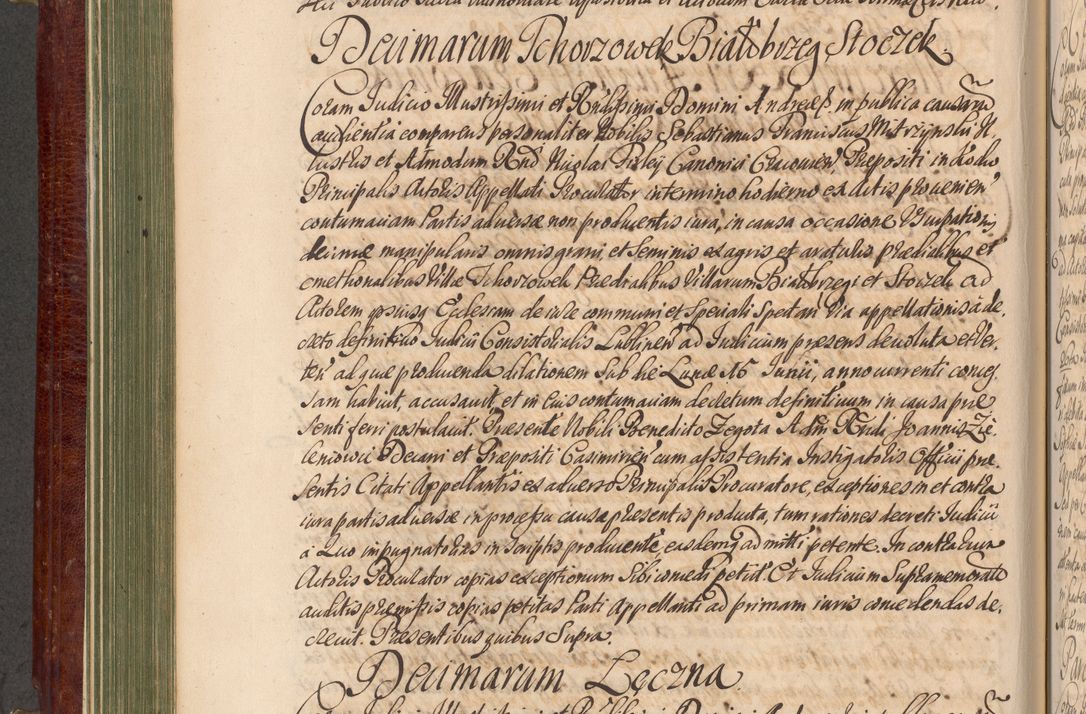 Decimarum Tchorzowek Białobrzeg, Stoczek.
Coram Judicio Illustrissimi et Rndissimi Domini Andreae ß. in publica causarũ
audientia comparens personaliter Nobilis Sebastianus Franciscus Mitrzynski Il,
lustris et Admodum Rnd Nicolai Firley Canonici Cracovien, Praepositi in
Principalis Actoris Appellati Procurator in termino hodierno ex actis provenien
contumaciam Partis adversae non producentis iura, in causa occasione Usurpationis
decimae manipularis omnis grani, et Seminis ex agris et aratulis praedialibus et
cmethonalibus Villae Tchorzowek Praedialibus Villarum Białobrzegi et Stoczek ad
Actorem ipsiusq Ecclesiam de iure communi et Speciali Spectan Via appellationis a de,
creto definitivo Judicii Consistorialis Lublinen ad Judicium praesens devoluta et Ver,
ten ad quae producenda dilationem sub die Lunae 16 Junii, anno currenti conces
sam habuit, accusavit, et in eius contumaciam decretum definitivum in causa prae
senti ferri postulavit. Praesente Nobili Benedicto Zegota Adm Rndi Joannis Zie,
leniewicz Decani et Praepositi Casimirien cum assistentia Instigatoris Officii prae,
sentis Citati Appellantis ex adverso Principalis Procuratore, exceptiones in et contra
iura partis adversae in processu causae praesentis producta, tum rationes decreti Judicii
a Quo impugnatorias in scriptis producente, easdemq admitti petente. In contrarium
Actoris Procurator copias exceptionum sibi concedi petiit. Et Judicium Supramemoratũ
auditis praemissis copias petitas Parti Appellanti ad primam iuris concedendas de,
crevit. Praesentibus quibus Supra.
Decimarum Łęczna